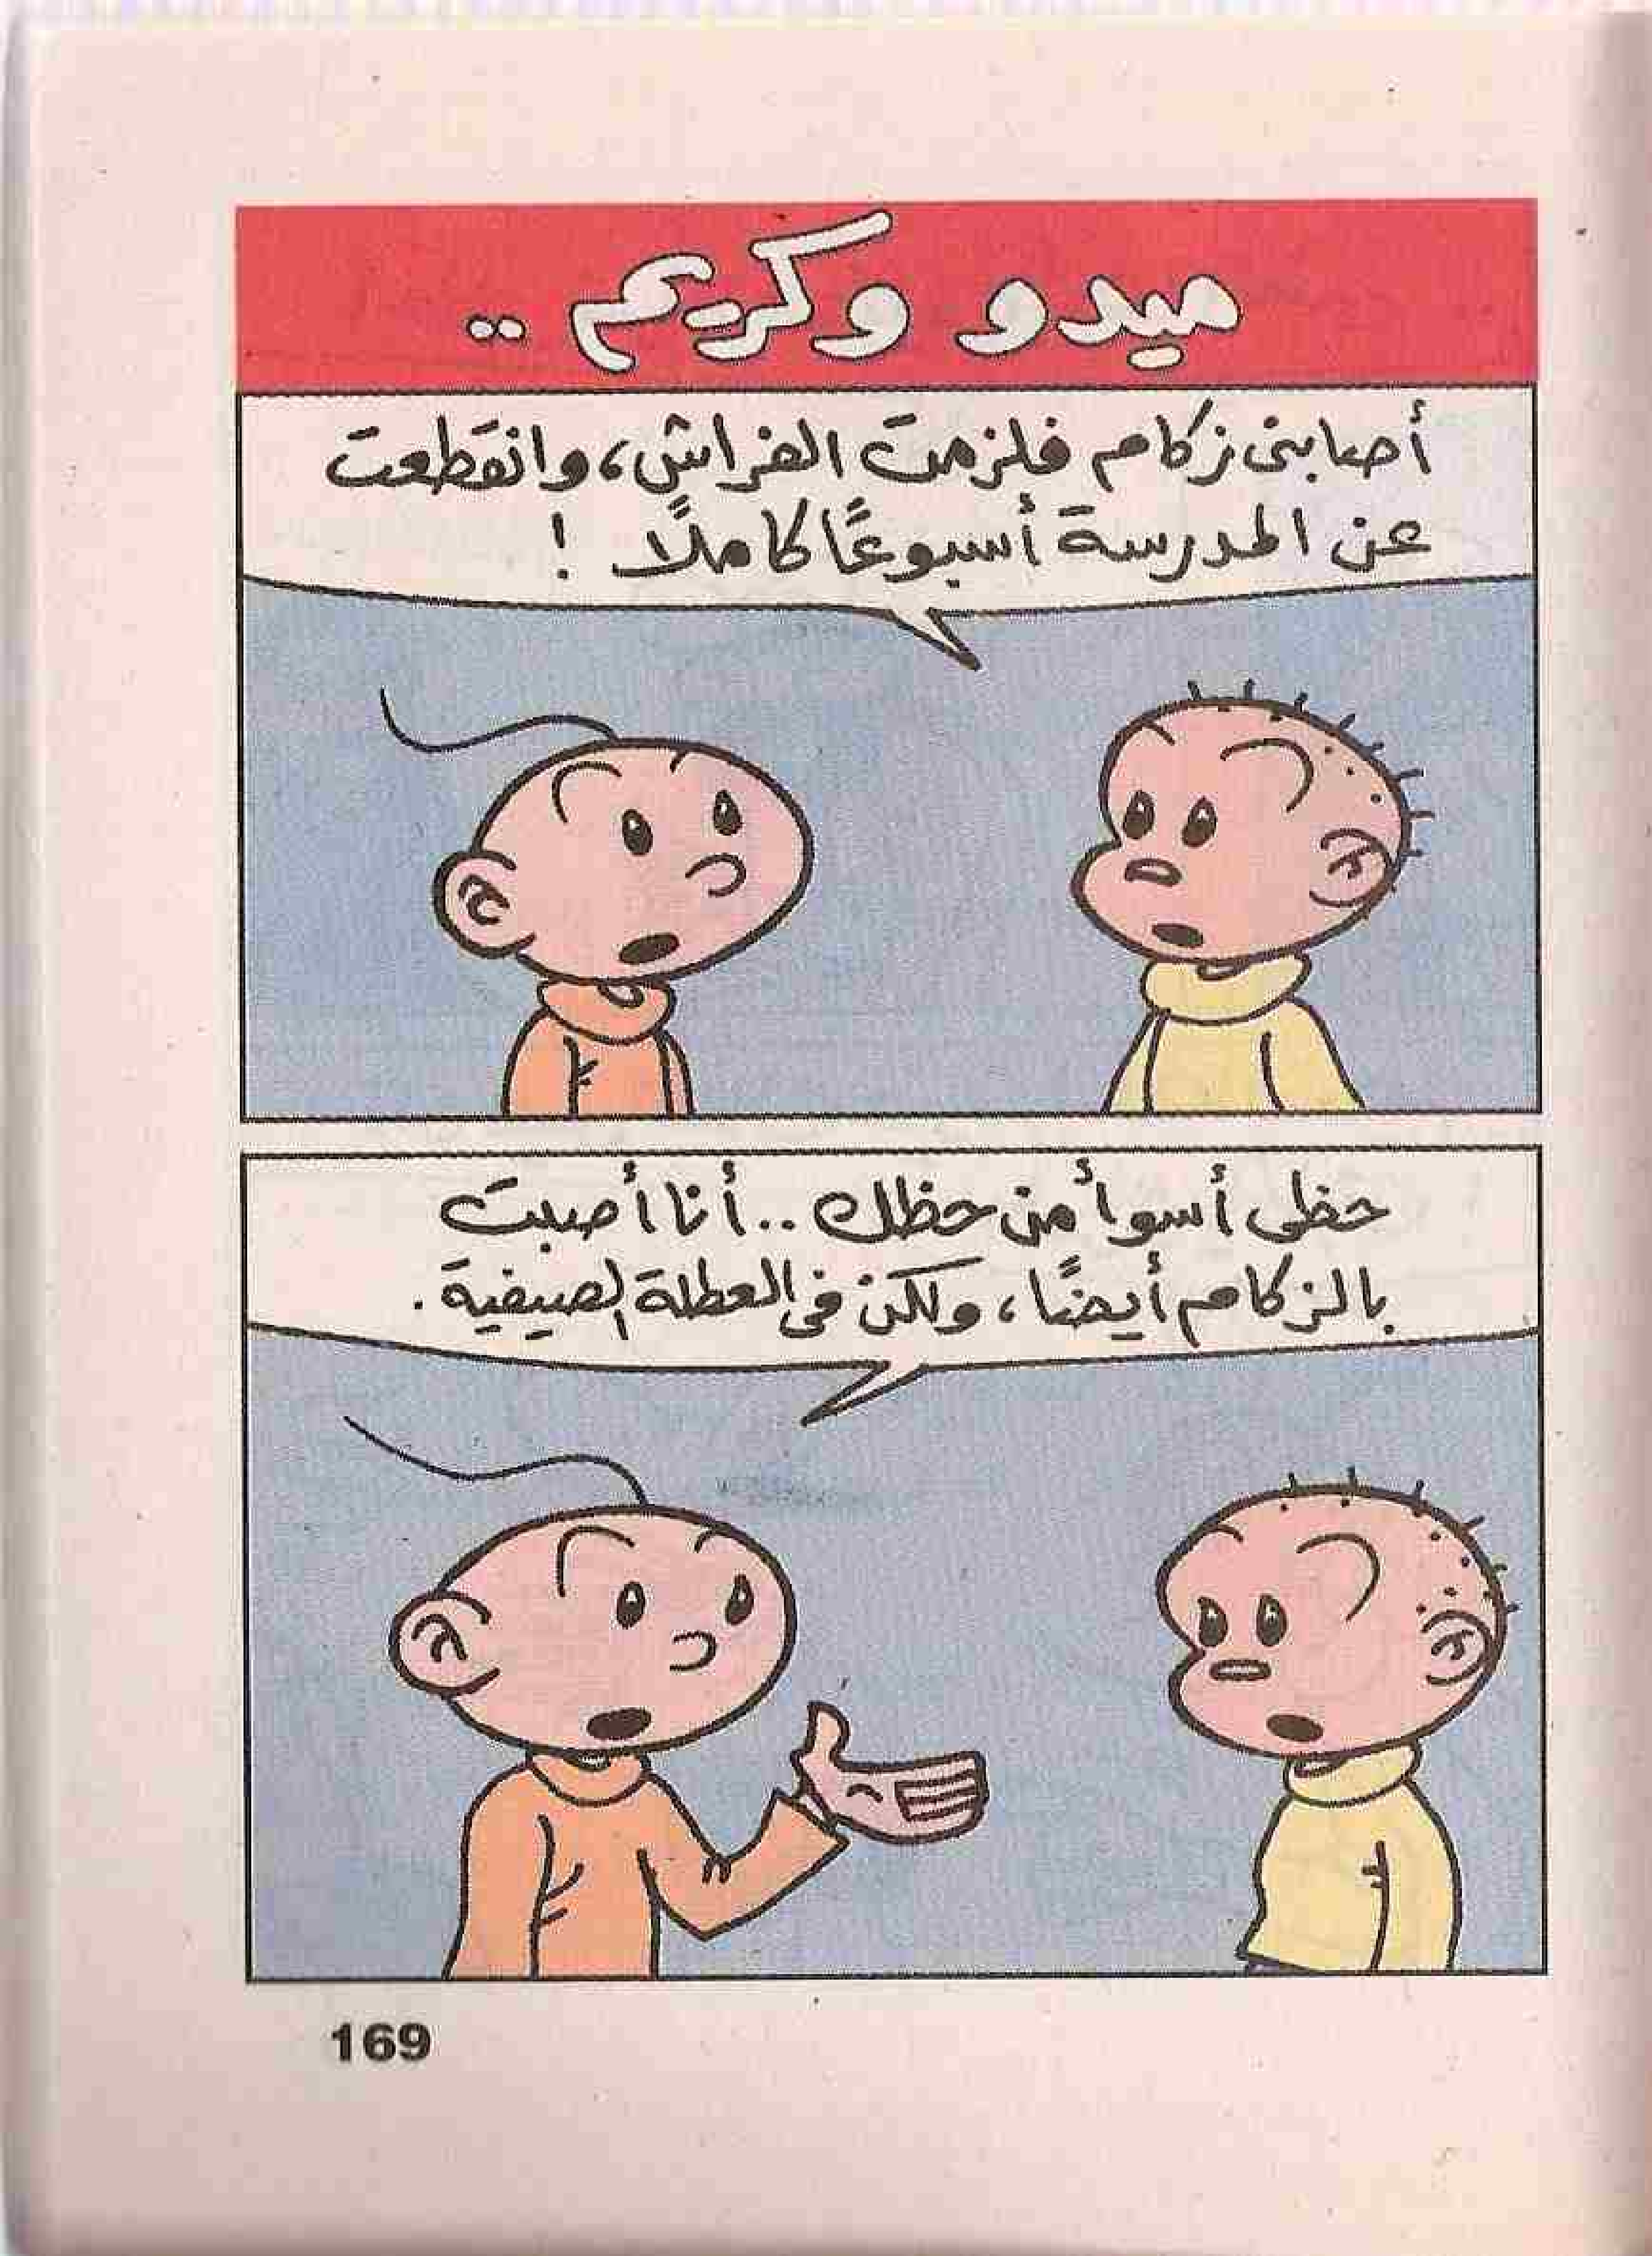 ميدو وكريم ..
أصابنى زكام فلزمت الفراش، وانقطعت
عن المدرسة أسبوعًا كاملًا !
حظى أسوأ من حظك .. أنا أصبت
بالزكام أيضًا، ولكن فى العطلة الصيفية .
169